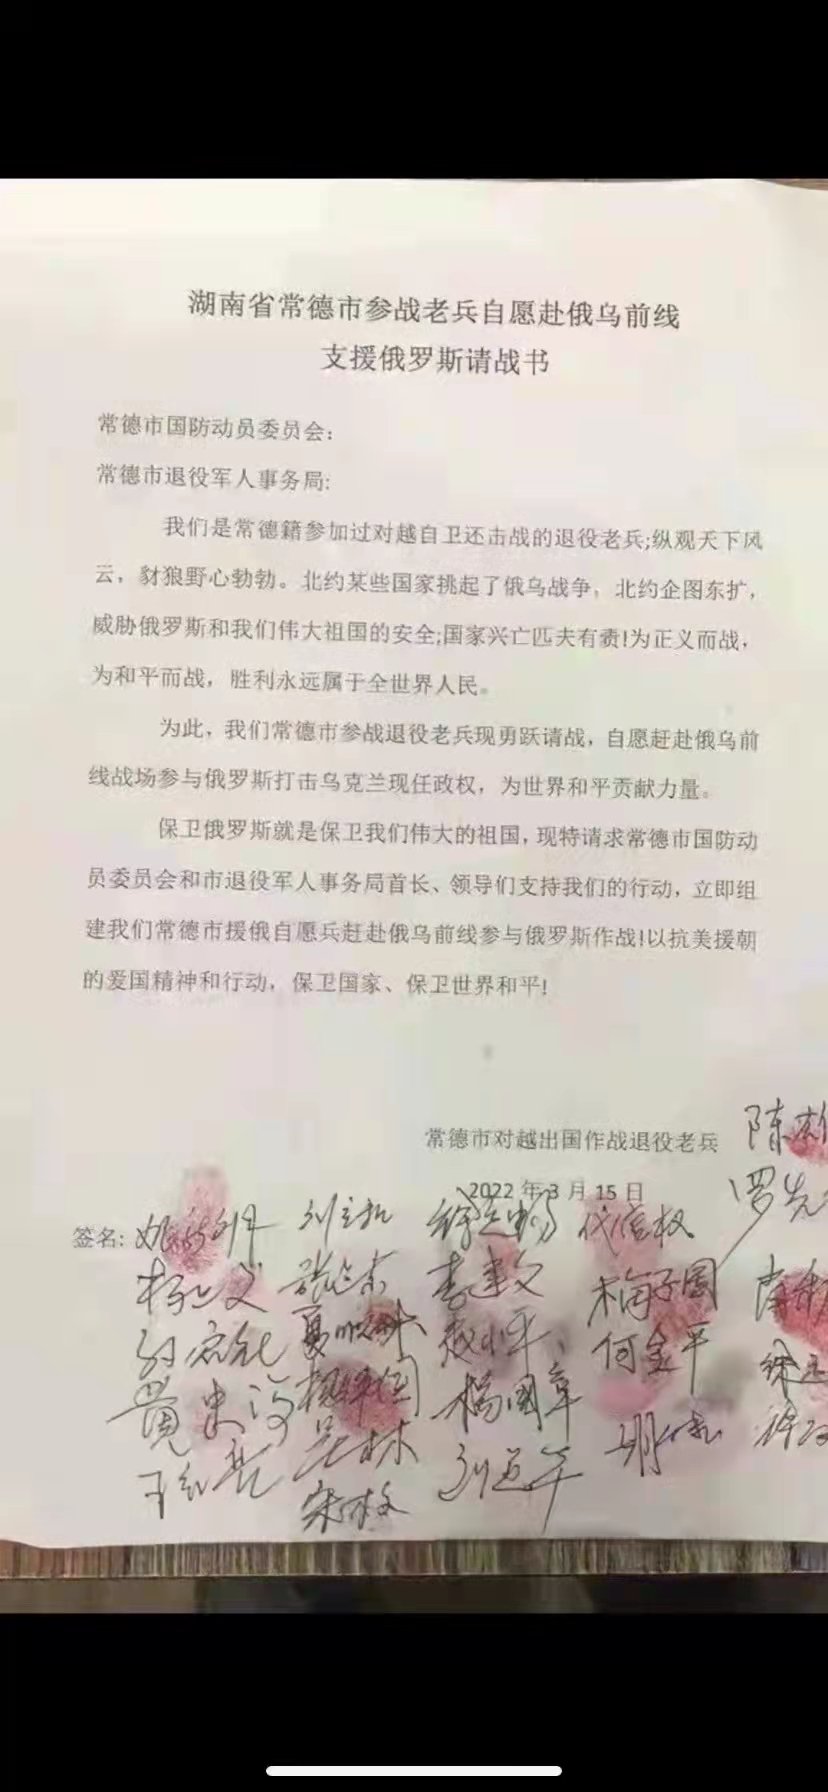 湖南省常德市参战老兵自愿赴俄乌前线
支援俄罗斯请战书
常德市国防动员委员会:
常德市退役军人事务局:
我们是常德籍参加过对越自卫还击战的退役老兵;纵观天下风
云，豺狼野心勃勃。北约某些国家挑起了俄乌战争，北约企图东扩，
威胁俄罗斯和我们伟大祖国的安全;国家兴亡匹夫有责!为正义而战，
为和平而战，胜利永远属于全世界人民。
为此，我们常德市参战退役老兵现勇跃请战，自愿赶赴俄乌前
线战场参与俄罗斯打击乌克兰现任政权，为世界和平贡献力量。
保卫俄罗斯就是保卫我们伟大的祖国，现特请求常德市国防动
员委员会和市退役军人事务局首长、领导们支持我们的行动，立即组
建我们常德市援俄自愿兵赶赴俄乌前线参与俄罗斯作战!以抗美援朝
的爱国精神和行动，保卫国家、保卫世界和平!
常德市对越出国作战退役老兵
2022 年 3 月 15 日
签名:
李建文 梅子圆
何金平
杨国章
吴林